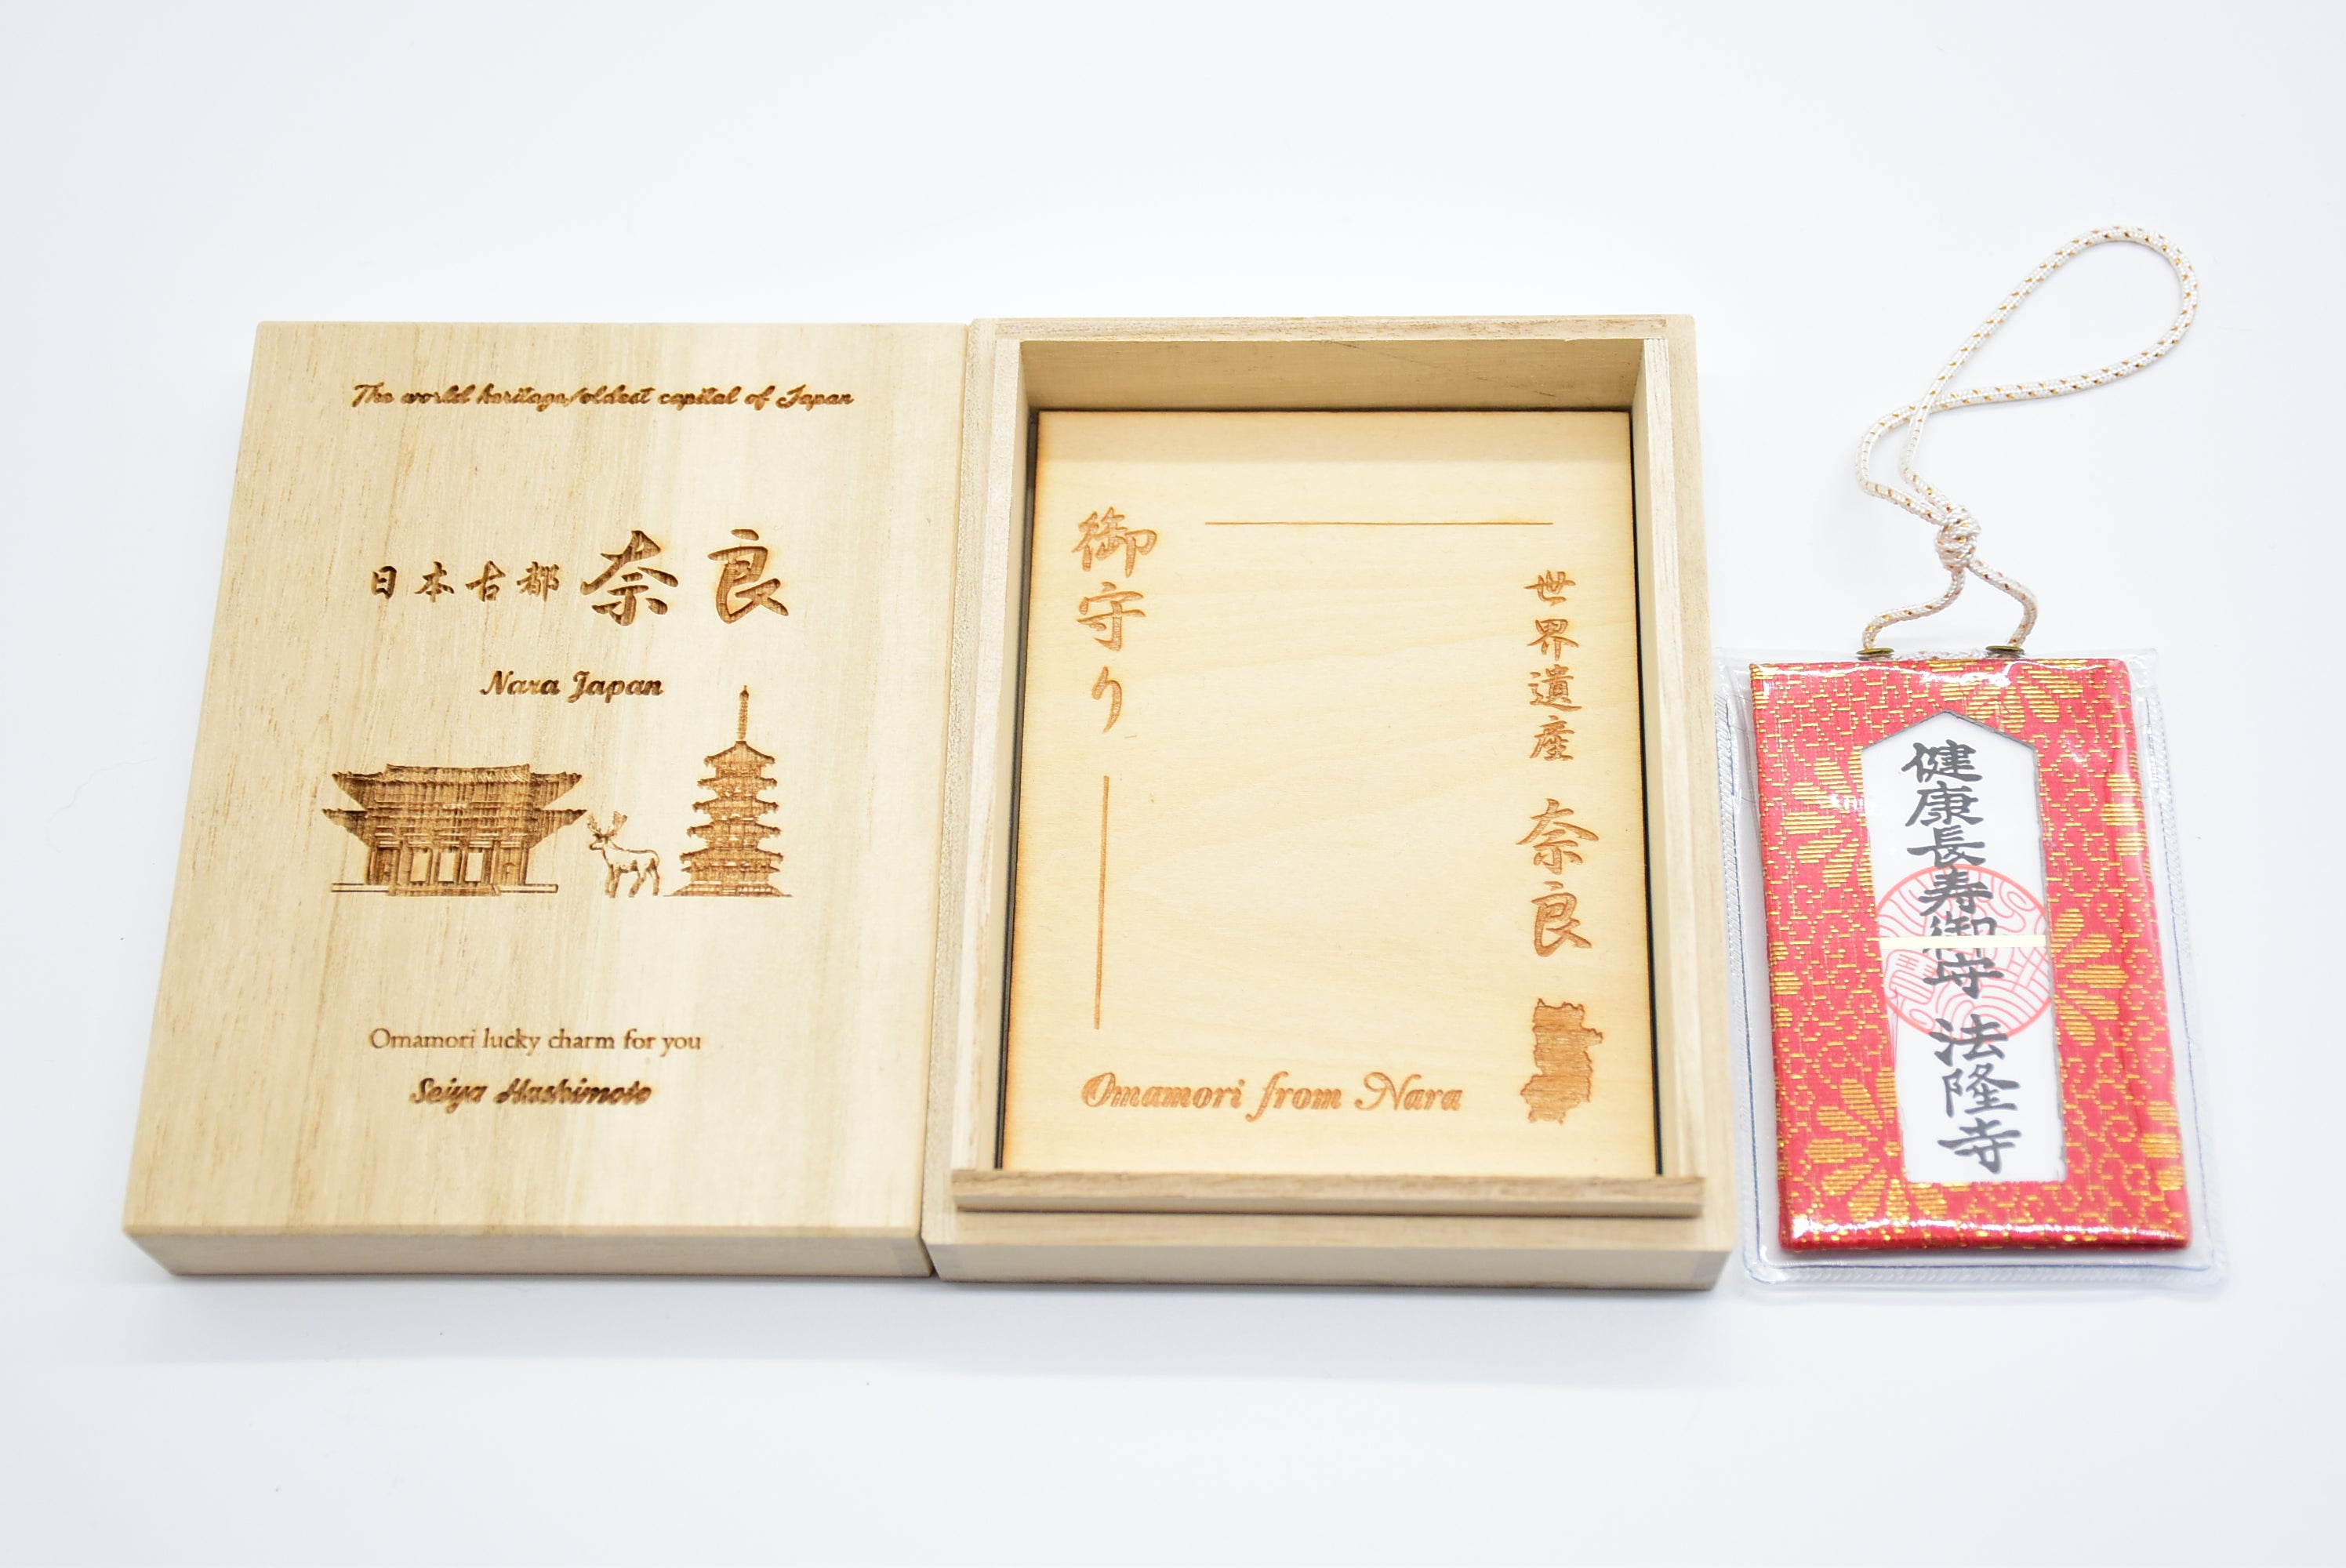 The world heritage/oldest capital of Japan
日本古都 奈良
Nara Japan
Omamori lucky charm for you
Seiya Hashimoto
御守り
世界遺産 奈良
Omamori from Nara
健康長寿御守 法隆寺